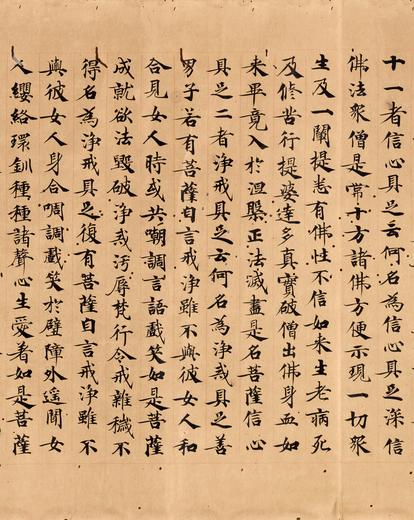 十一者信心具足云何名為信心具足深信
佛法眾僧是常十方諸佛方便示現一切眾
生及一闡提悉有佛性不信如来生老病死
及修苦行提婆達多真實破僧出佛身血如
来畢竟入於涅槃正法滅盡是名菩薩信心
具足二者淨戒具足云何名為淨戒具足善
男子若有菩薩自言戒淨雖不與彼女人和
合見女人時或共嘲調言語戲笑如是菩薩
成就欲法毀破淨戒污辱梵行令戒雜穢不
得名為淨戒具足復有菩薩自言戒淨雖不
與彼女人身合嘲調戲笑於壁障外遙聞女
人纓絡環釧種種諸聲心生愛著如是菩薩